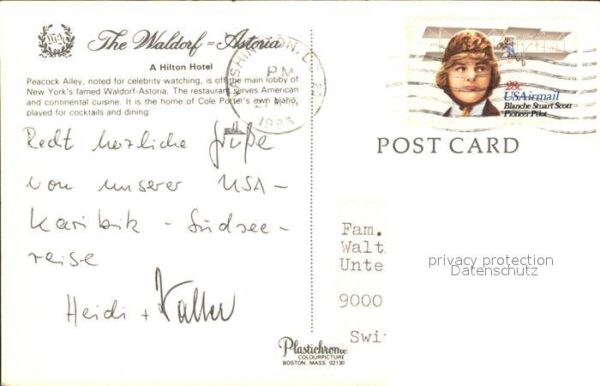 The Waldorf=Astoria
A Hilton Hotel
Peacock Alley, noted for celebrity watching, is off the main lobby of
New York's famed Waldorf-Astoria. The restaurant serves American
and continental cuisine. It is the home of Cole Porter's own piano,
played for cocktails and dining.
PM
28c
USAirmail
Blanche Stuart Scott
Pioneer Pilot
POST CARD
Recht herzliche Grüße
von unserer USA-
Karibik - Südsee-
reise
Heidi + Walter
Fam.
Walt
Unte
9000
Swi
privacy protection
Datenschutz
Plastichrome
COLOURPICTURE
BOSTON, MASS. 02130